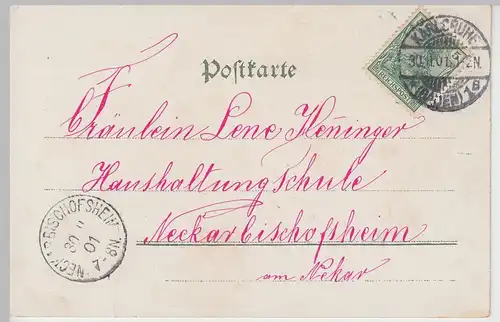 KARLSRUHE
30.11.01. 1-2N.
(BADEN) 1
Postkarte
Fräulein Lene Henninger
Haushaltungschule
Neckarbischofsheim
am Nekar
NECKARBISCHOFSHEIM
30 11
01
7-8N